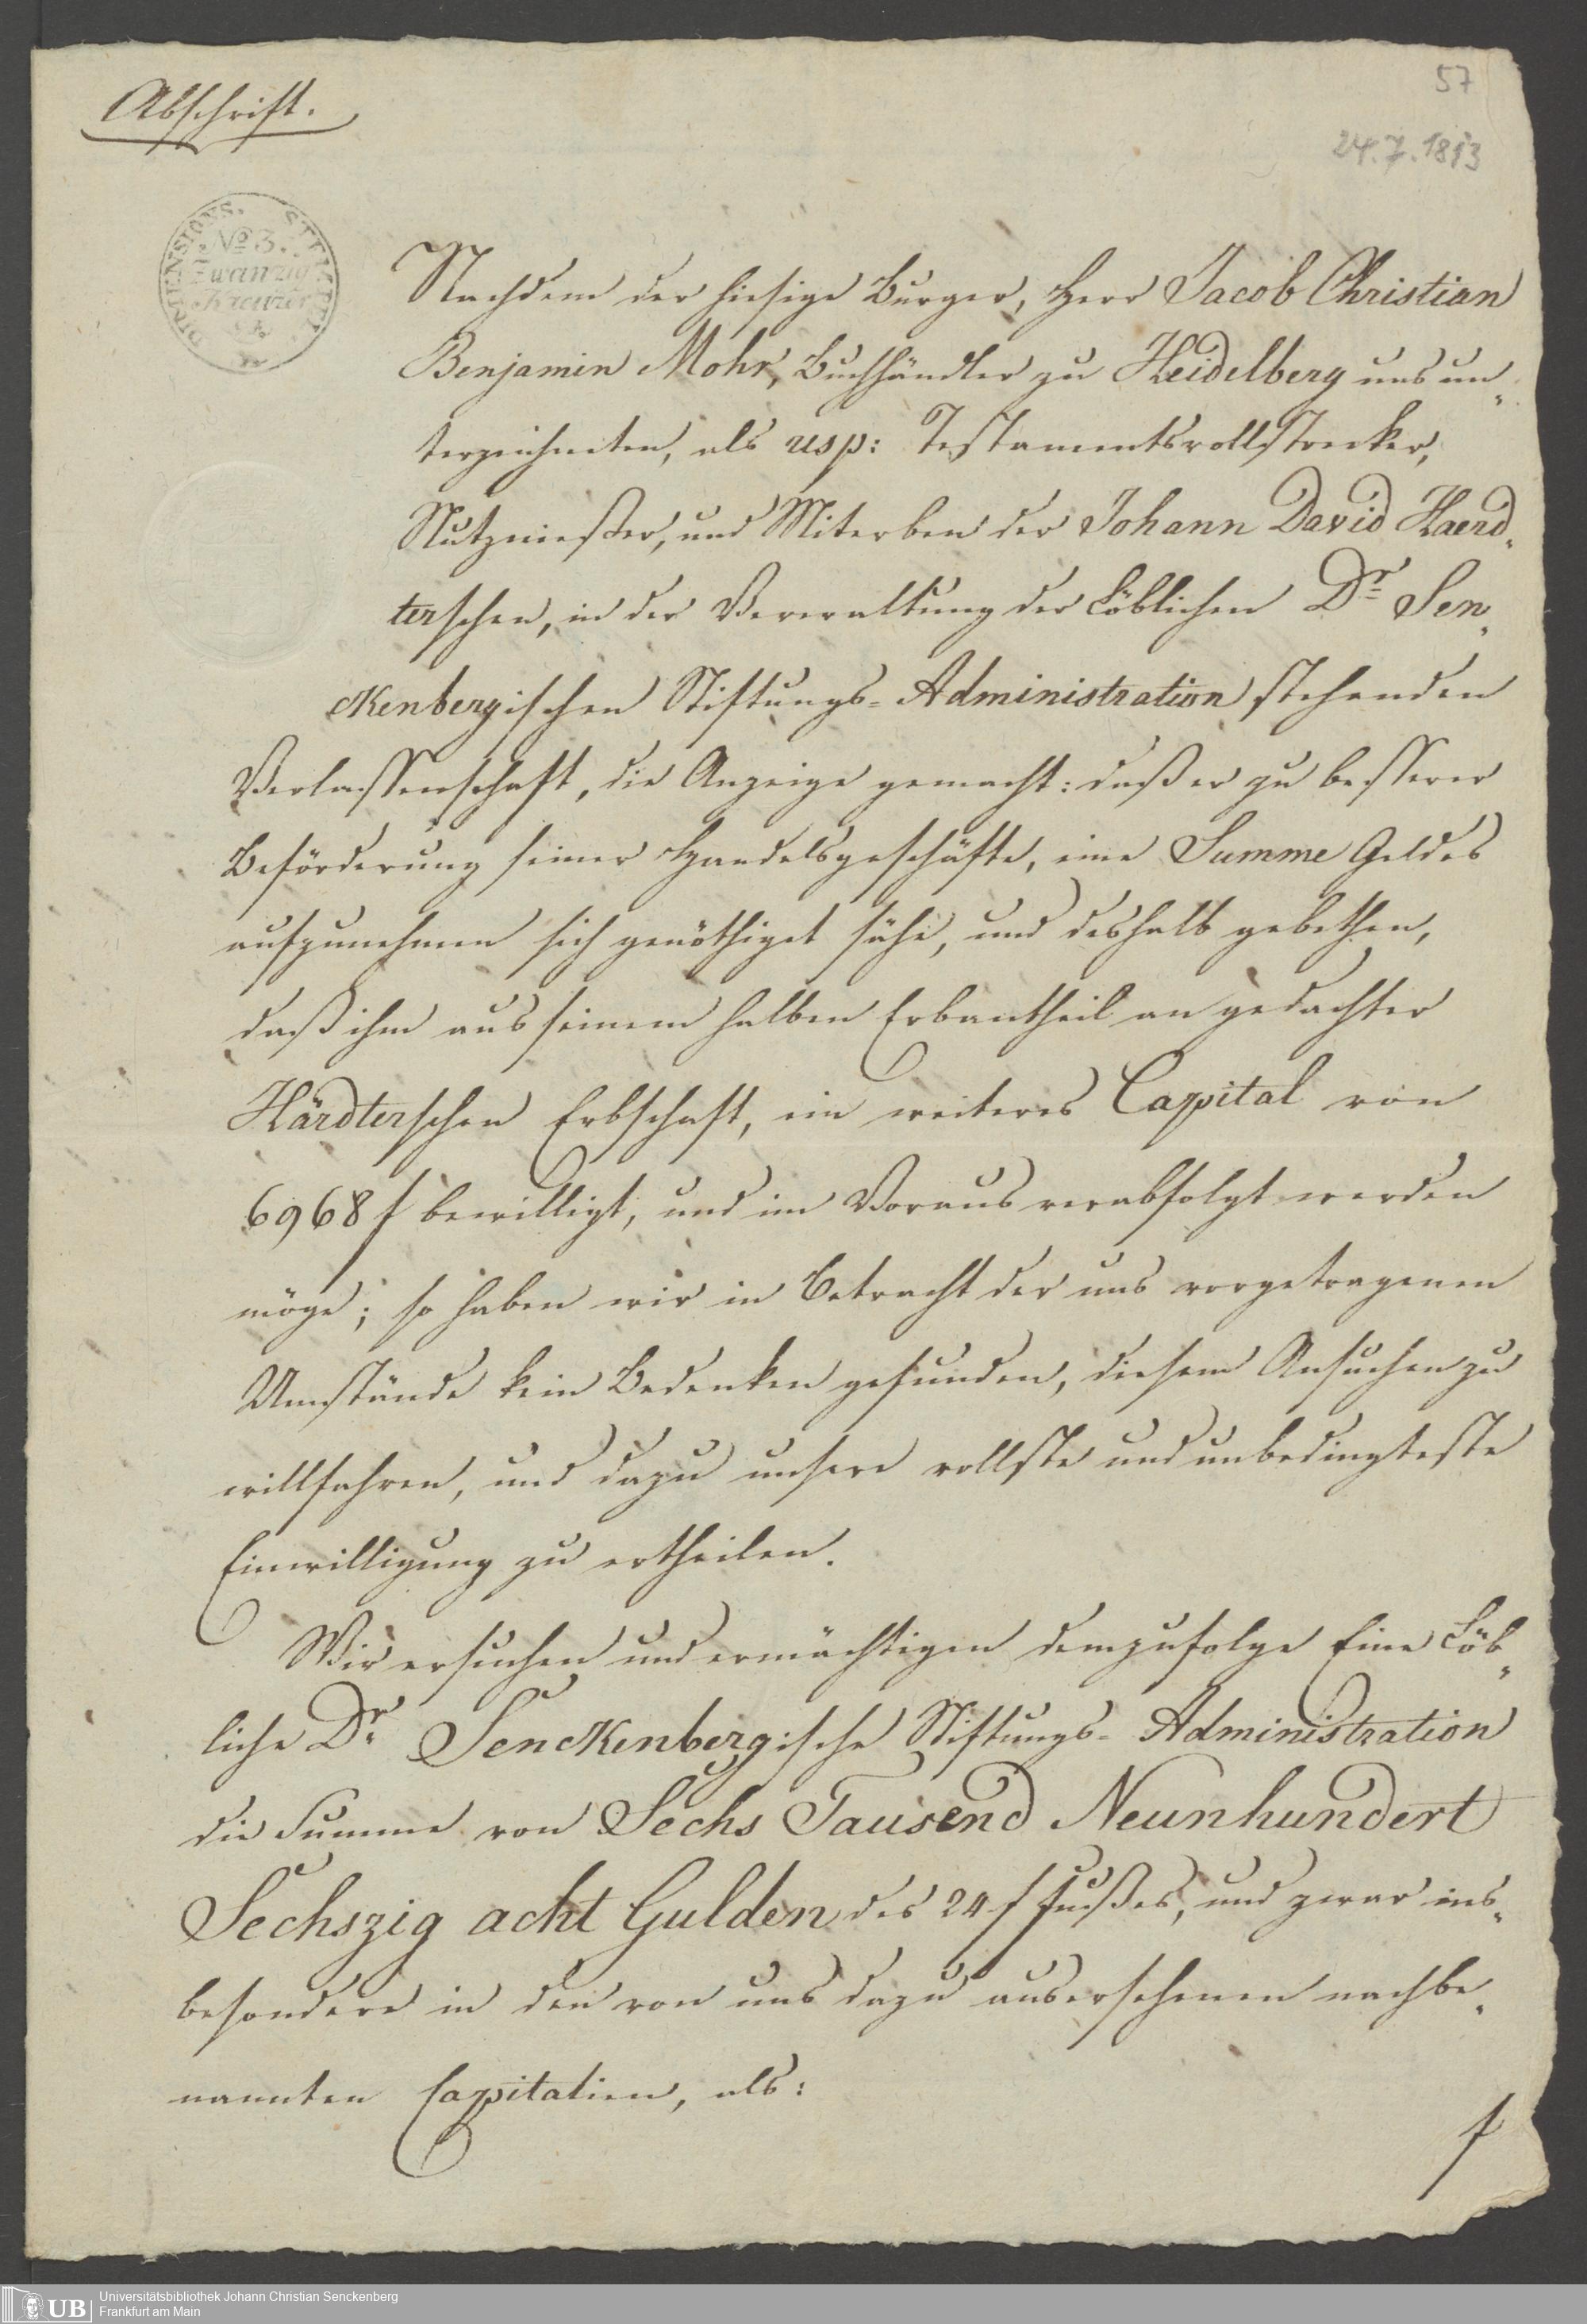 57
Abschrift.
24.7.1813
DIMENSIONS. STEMPEL.
No 3.
Zwanzig
Kreuzer
Nachdem der hiesige Burger, Herr Jacob Christian
Benjamin Mohr, Buchhändler zu Heidelberg uns un„
terzeichneten, als resp: Testamentsvollstrecker,
Nutznießer, und Miterben der Johann David Haerd„
terschen, in der Verwaltung der Löblichen Dr. Sen„
ckenbergischen Stiftungs=Administration stehenden
Verlassenschaft, die Anzeige gemacht: daß er zu besserer
Beförderung seiner Handelsgeschäfte, eine Summe Geldes
aufzunehmen sich genöthiget sähe, und deshalb gebethen,
daß ihm aus seinem halben Erbantheil an gedachter
Härdterschen Erbschaft, ein weiteres Capital von
6968 f bewilligt, und im Voraus verabfolgt werden
möge; so haben wir in Betracht der uns vorgetragenen
Umstände kein Bedenken gefunden, diesem Ansuchen zu
willfahren, und dazu unsere vollste und unbedingteste
Einwilligung zu ertheilen.
Wir ersuchen und ermächtigen demzufolge Eine Löb„
liche Dr. Senckenbergische Stiftungs=Administration
die Summe von Sechs Tausend Neunhundert
Sechszig acht Gulden des 24 f Fußes, und zwar ins„
besondere in den von uns dazu ausersehenen nachbe„
nannten Capitalien, als:
f
UB
Universitätsbibliothek Johann Christian Senckenberg
Frankfurt am Main